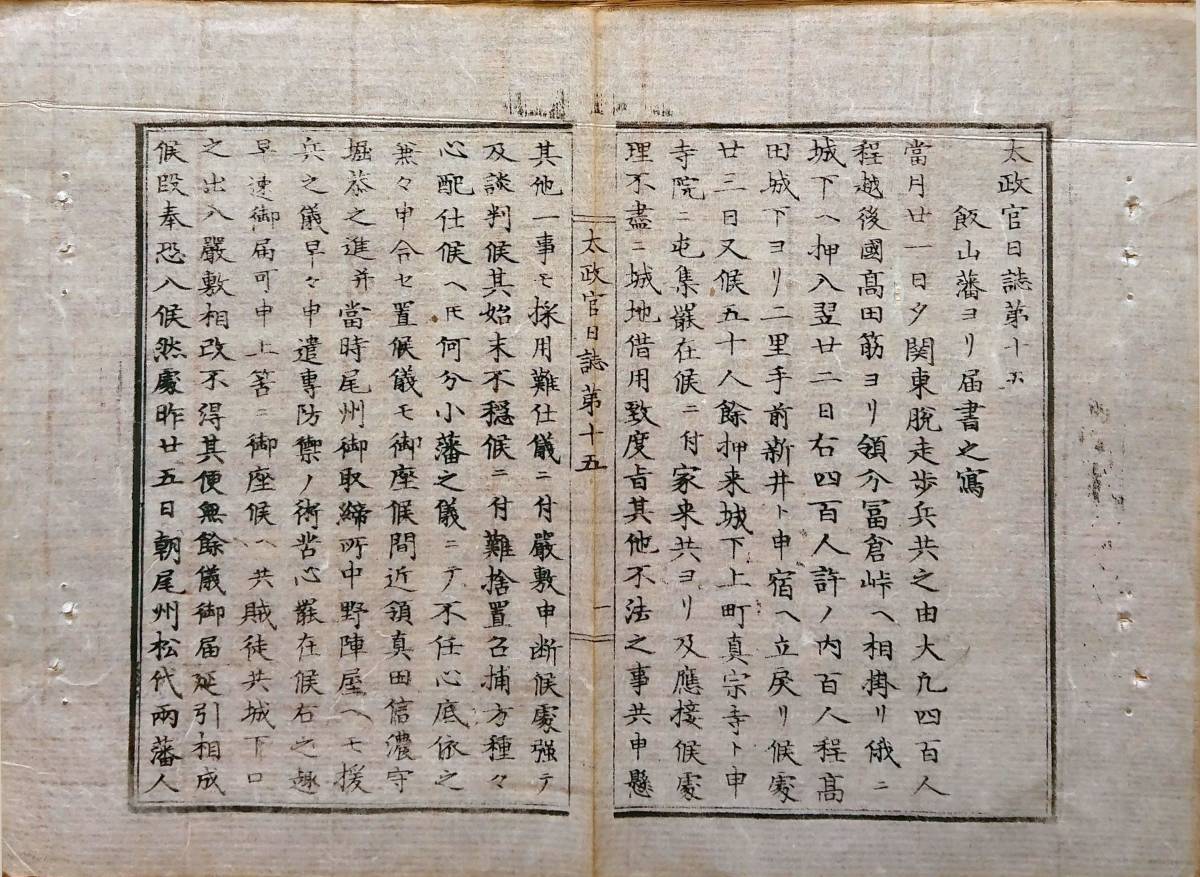 太政官日誌第十五
飯山藩ヨリ届書之寫
當月廿一日夕関東脱走歩兵共之由大凢四百人
程越後國髙田筋ヨリ領分冨倉峠ヘ相掛リ俄ニ
城下ヘ押入翌廿二日右四百人許ノ内百人程髙
田城下ヨリ二里手前新井ト申宿ヘ立戻リ候處
廿三日又候五十人餘押来城下上町真宗寺ト申
寺院ニ屯集罷在候ニ付家来共ヨリ及應接候處
理不盡ニ城地借用致度旨其他不法之事共申懸
太政官日誌第十五
一
其他一事モ採用難仕儀ニ付嚴敷申断候處强テ
及談判候其始末不穏候ニ付難捨置召捕方種々
心配仕候ヘ𪜈何分小藩之儀ニテ不任心底依之
兼々申合セ置候儀モ御座候間近領真田信濃守
堀恭之進并當時尾州御取締所中野陣屋ヘモ援
兵之儀早々申遣專防禦ノ術苦心罷在候右之趣
早速御届可申上筈ニ御座候ヘ共賊徒共城下口
之出入嚴敷相改不得其便無餘儀御届延引相成
候段奉恐入候然處昨廿五日朝尾州松代両藩人